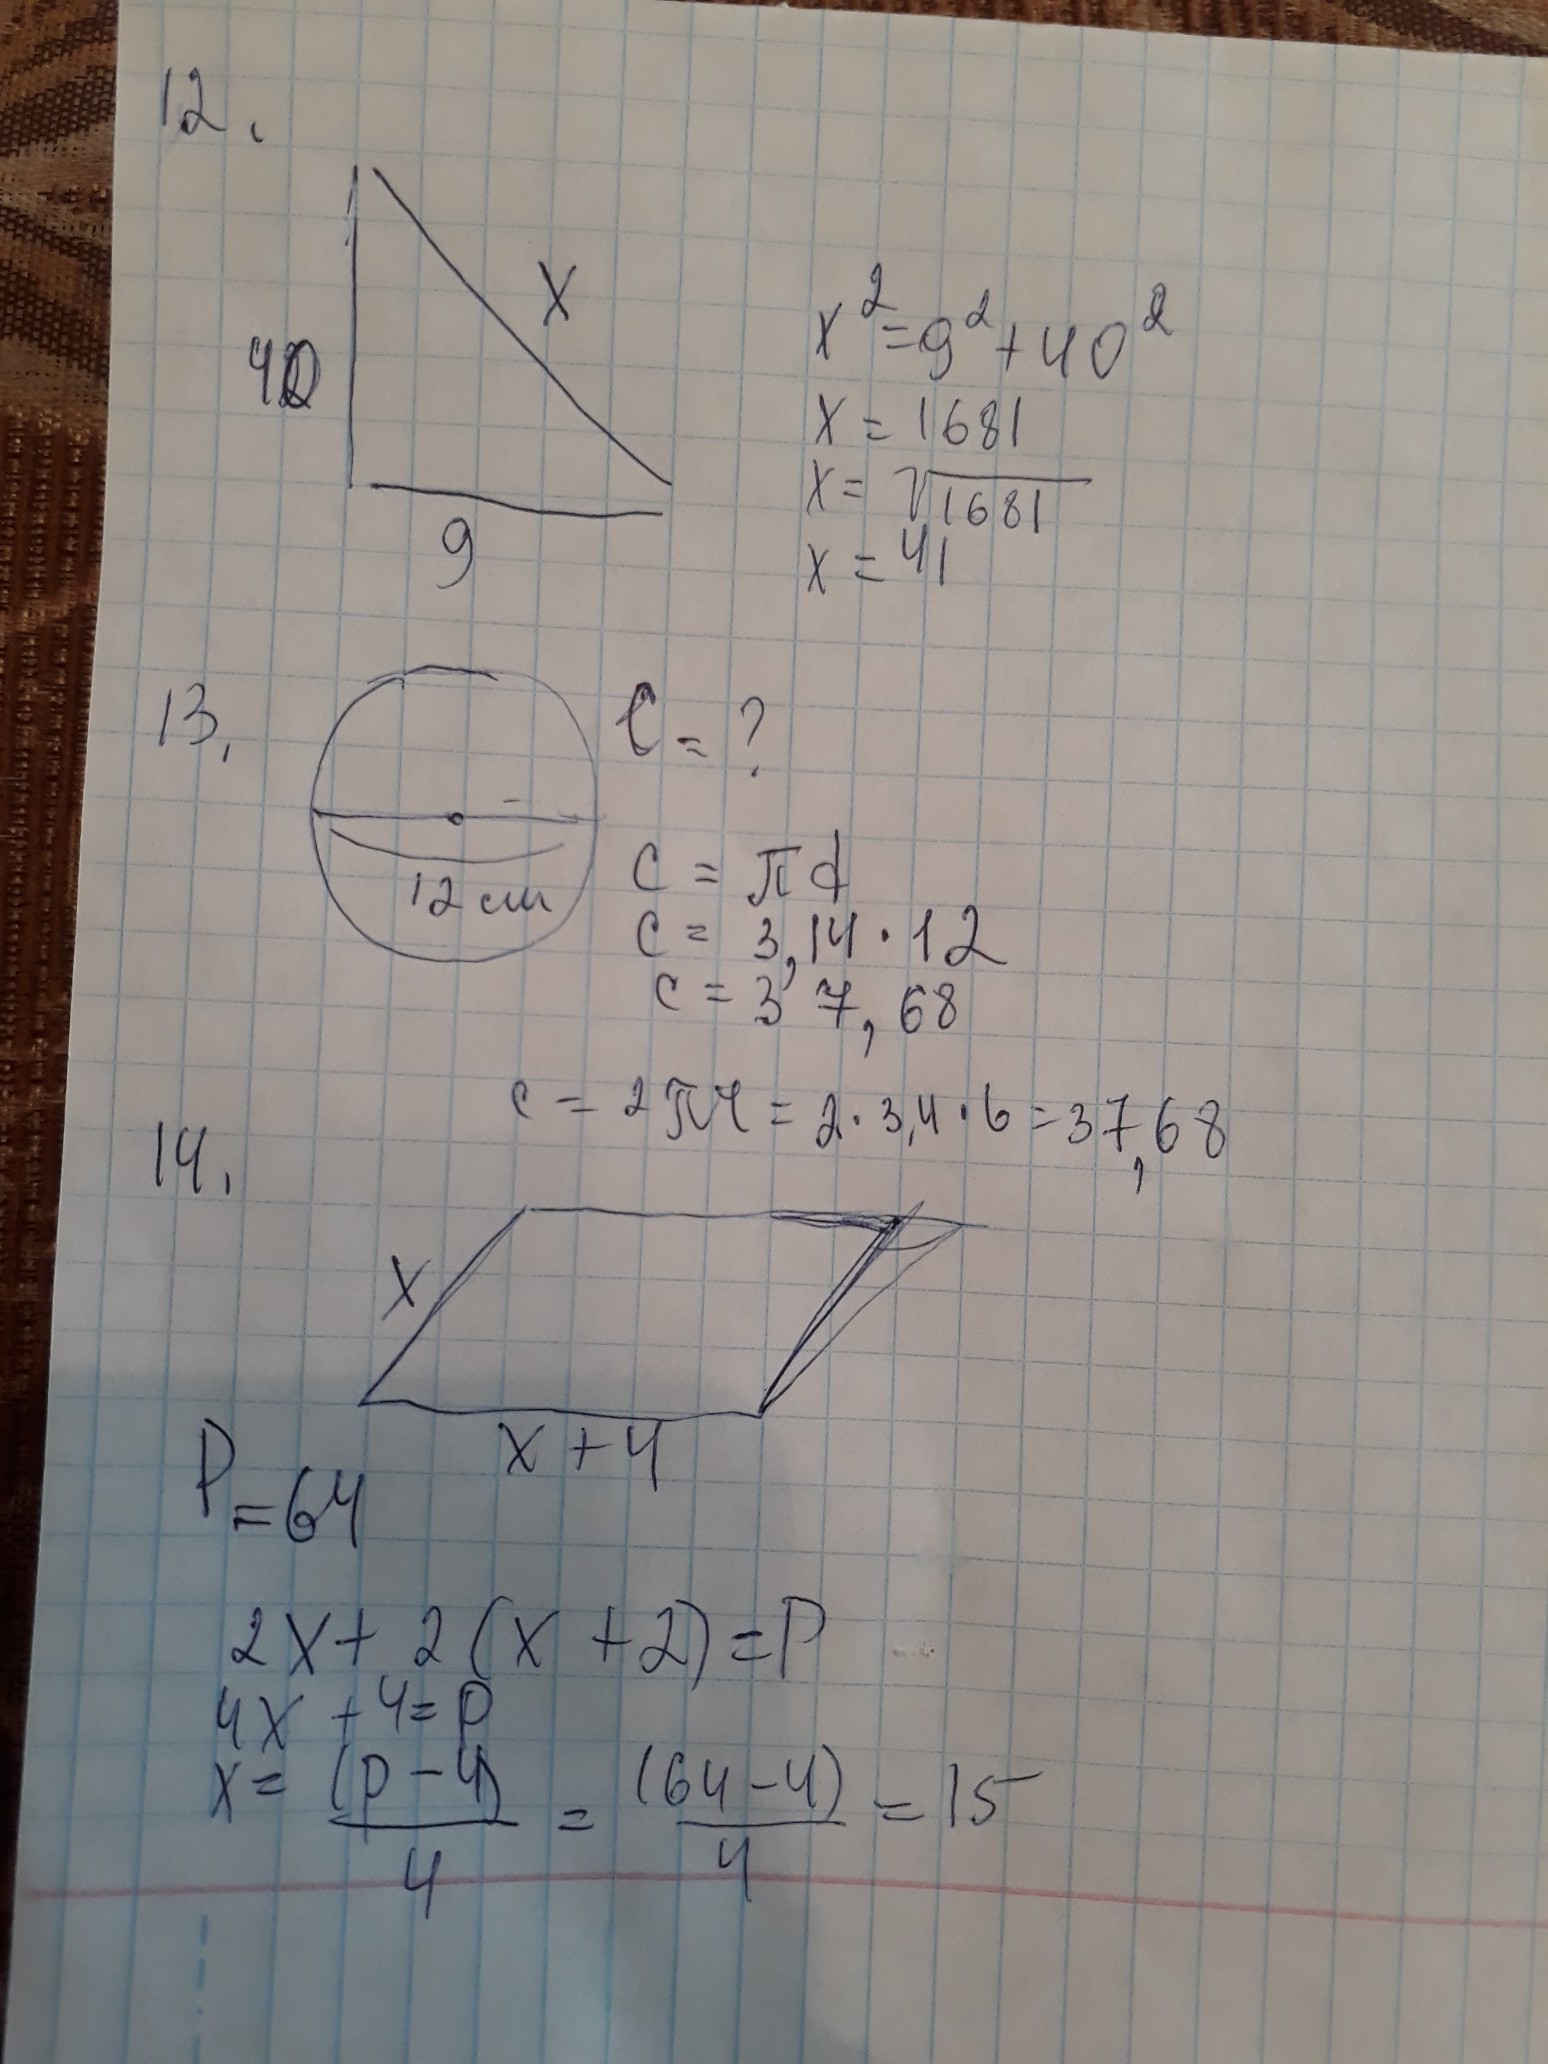 12.
X
40
9
x² = 9² + 40²
x = 1681
x = √1681
x = 41
13.
C = ?
12 см
C = πd
C = 3,14 · 12
C = 37,68
c = 2πr = 2 · 3,14 · 6 = 37,68
14.
X
X + 4
P = 64
2x + 2(x + 2) = P
4x + 4 = P
x = (P - 4)/4 = (64 - 4)/4 = 15